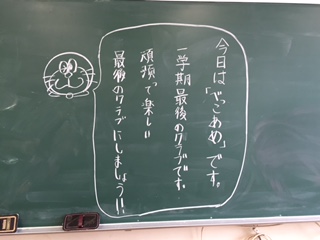 今日は「べっこあめ」です。
一学期最後のクラブです。
頑張って楽しい
最後のクラブにしましょう!!